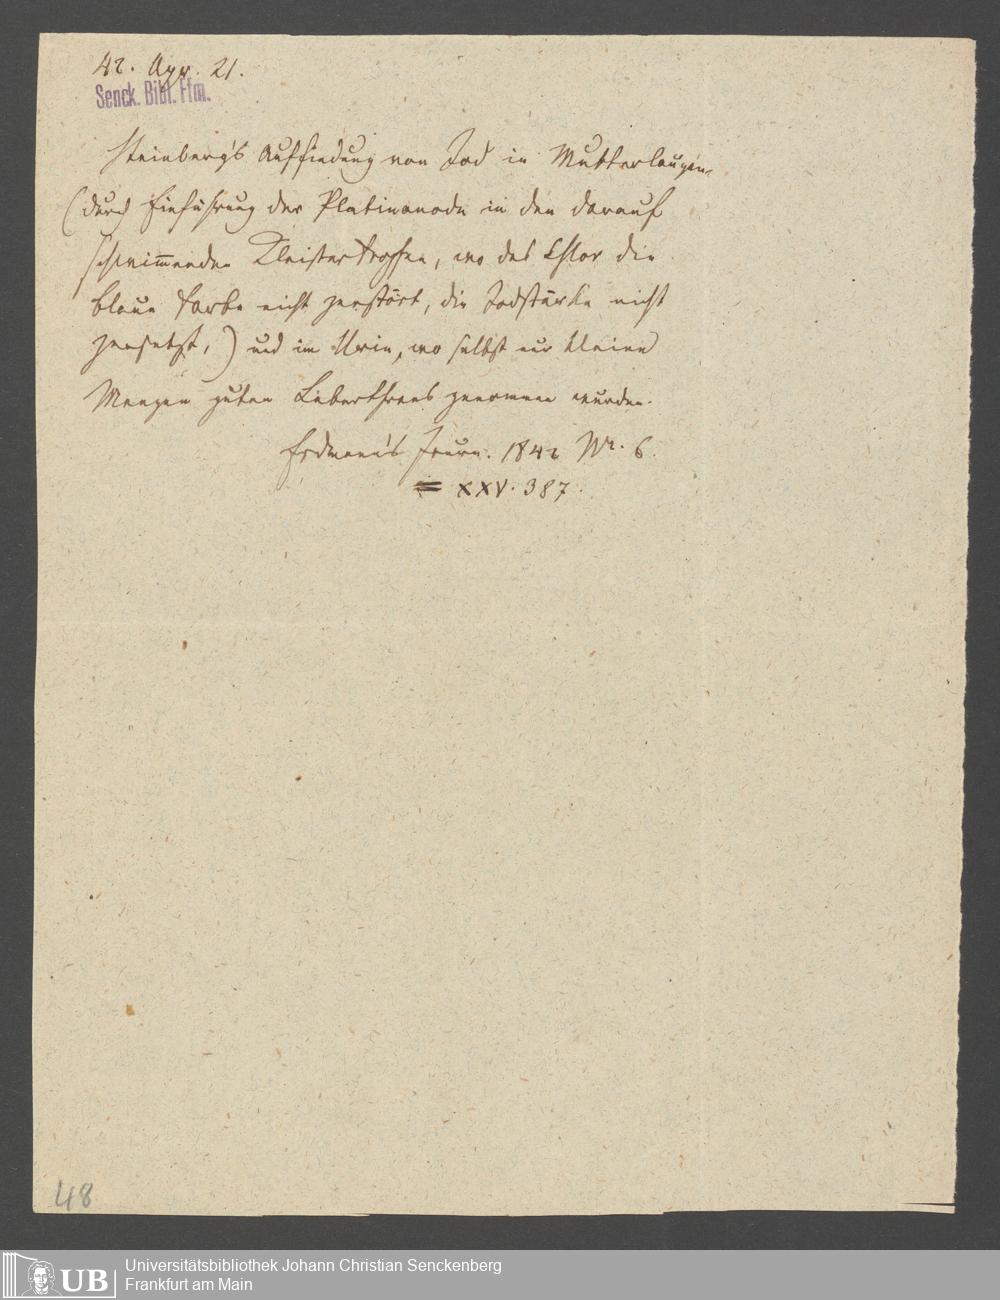 42. Apr. 21.
Senck. Bibl. Ffm.
Steinberg's Auffindung von Jod in Mutterlaugen
(durch Einführung der Platinanode in den darauf
schwim̅enden Kleistertropfen, wo das Chlor die
blaue Farbe nicht zerstört, die Jodstärke nicht
zersetzt,) und im Urin, wo selbst nur kleine
Mengen guten Leberthrans genommen wurden.
Erdmann's Journ. 1842 Nr. 6.
= XXV. 387.
48
UB
Universitätsbibliothek Johann Christian Senckenberg
Frankfurt am Main